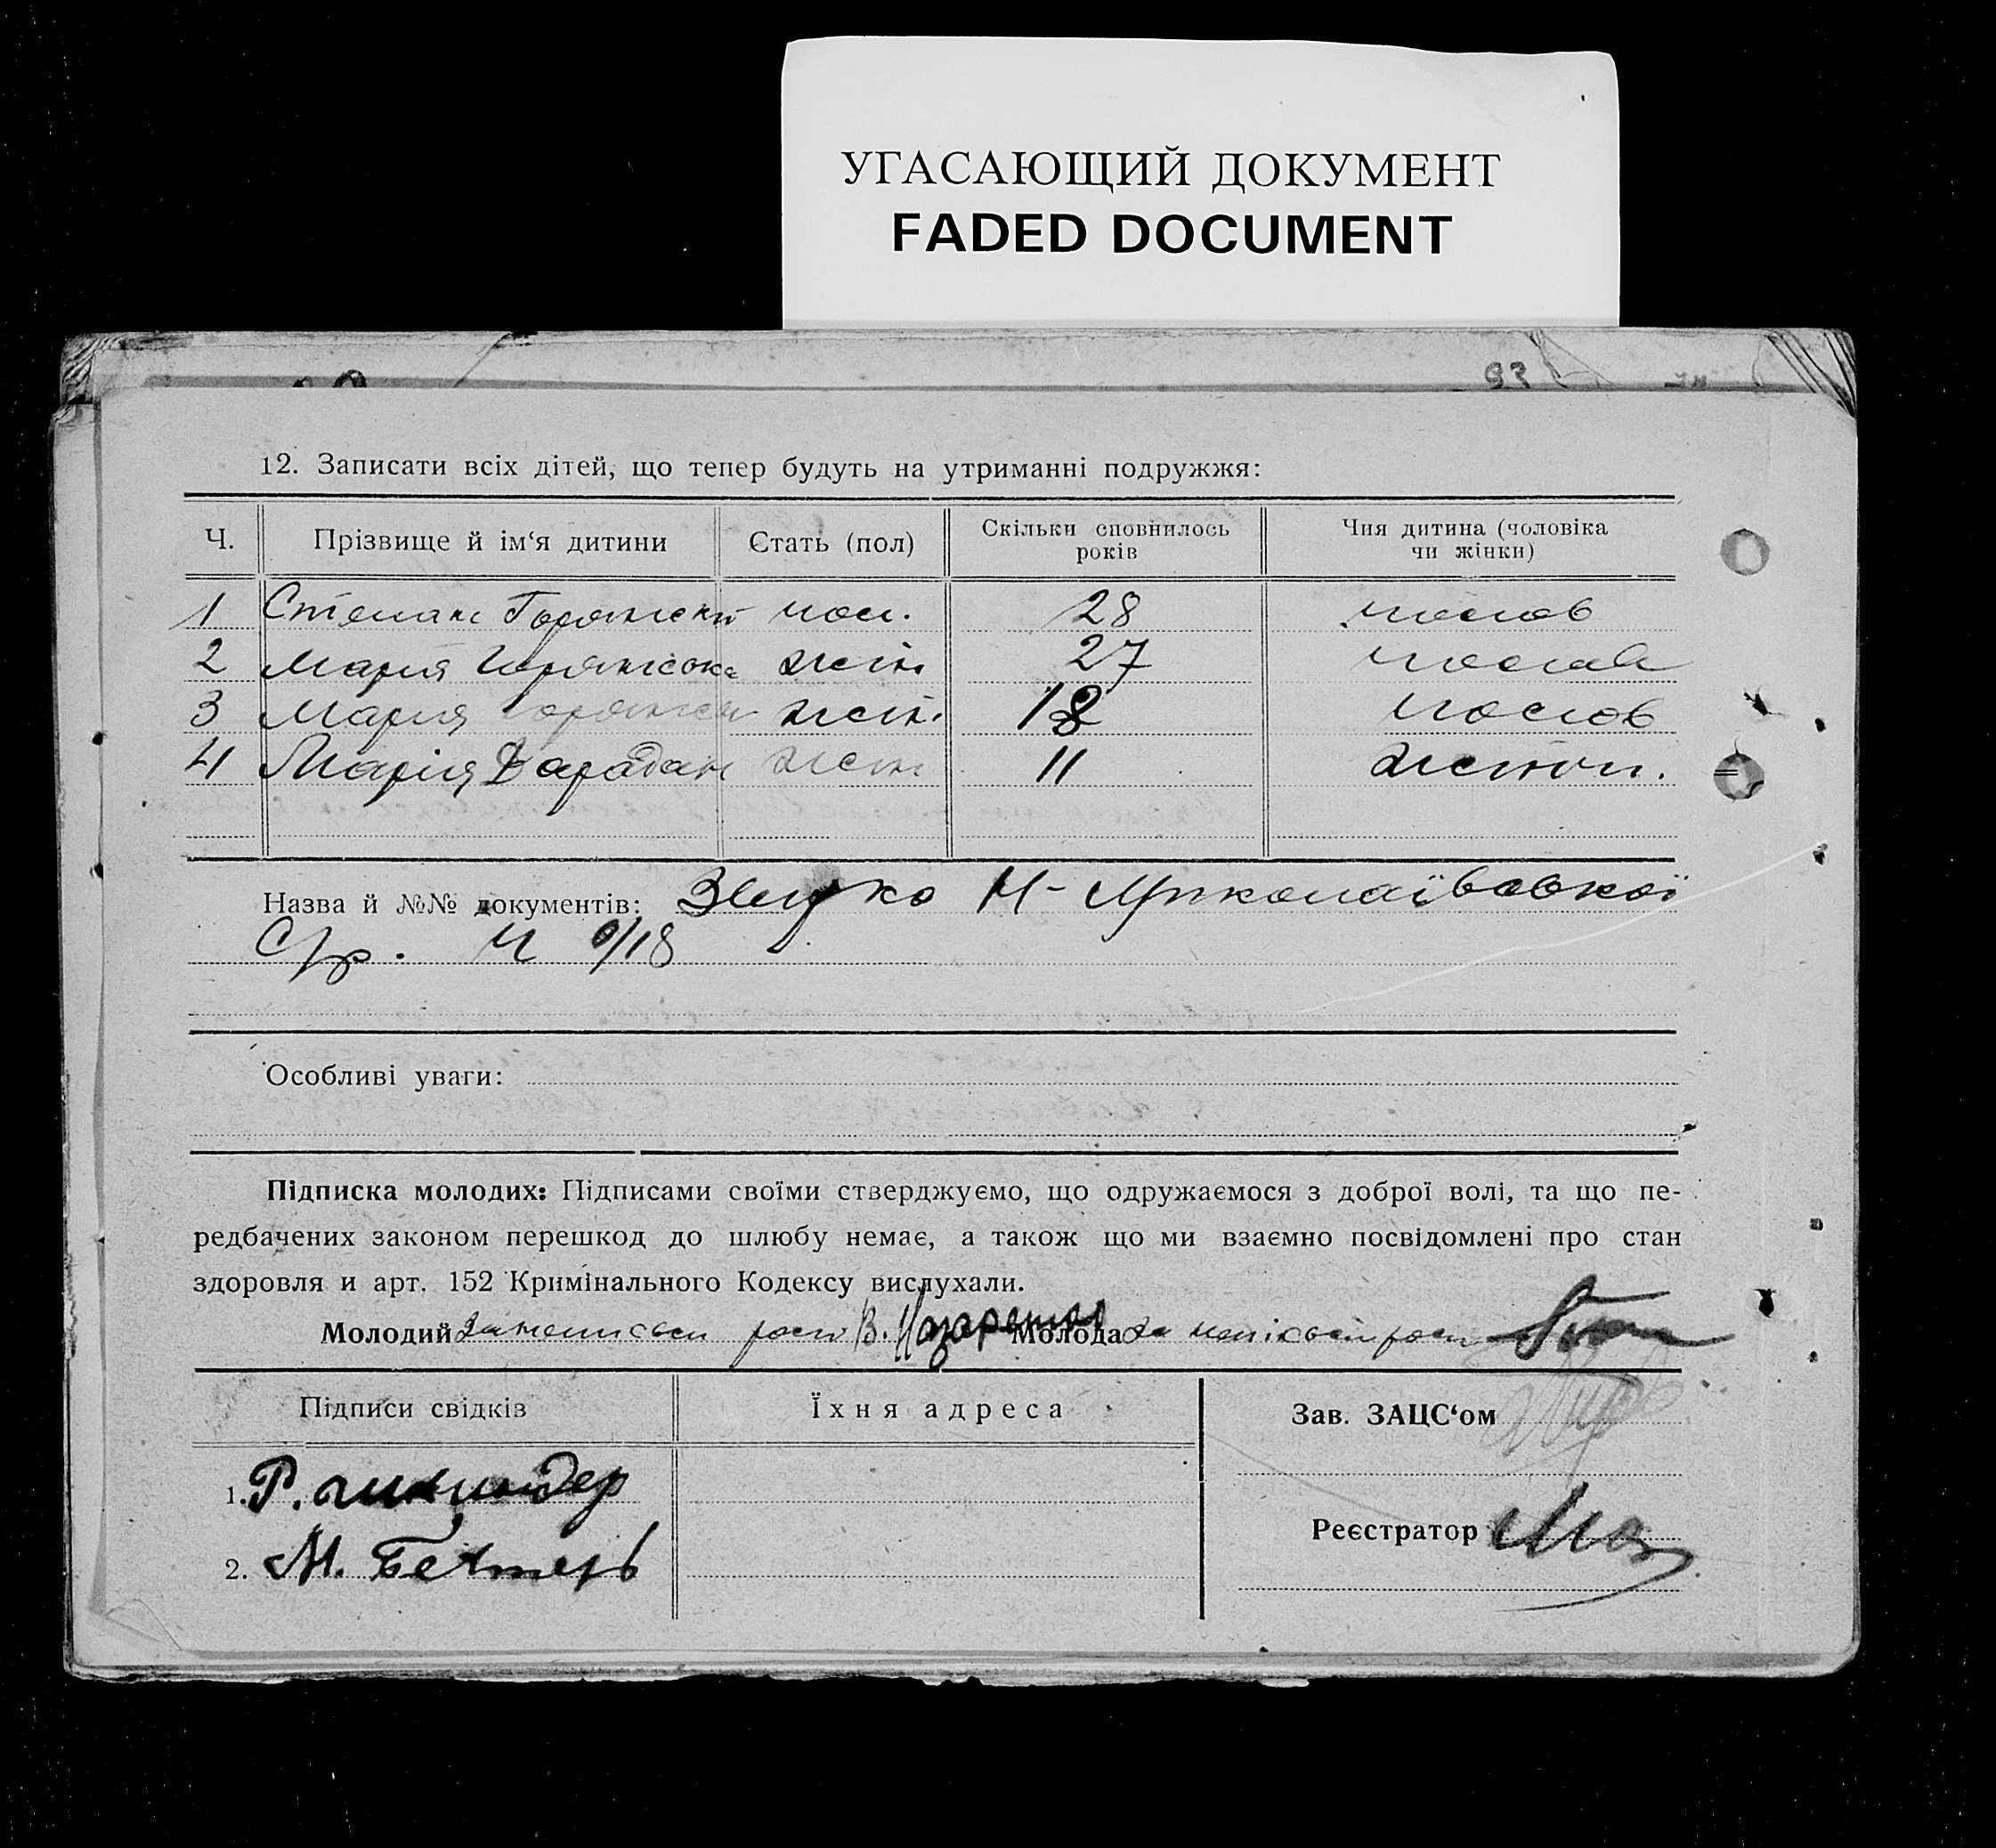 УГАСАЮЩИЙ ДОКУМЕНТ
FADED DOCUMENT
93
12. Записати всіх дітей, що тепер будуть на утриманні подружжя:
Ч. Прізвище й ім‘я дитини Єтать (пол) Скільки сповнилось років Чия дитина (чоловіка чи жінки)
1 Степан чол. 28 чолов
2 Мария жін 27 чолов
3 Мария жін. 18 чолов
4 Марія Варадан жін 11 жіноч.
Назва й №№ документів: Миколаївської
С/р. Ч /18
Особливі уваги:
Підписка молодих: Підписами своїми стверджуємо, що одружаємося з доброї волі, та що пе-
редбачених законом перешкод до шлюбу немає, а також що ми взаємно посвідомлені про стан
здоровля и арт. 152 Кримінального Кодексу вислухали.
Молодий В. Молода за
Підписи свідків Їхня адреса Зав. ЗАЦС‘ом
1. Р.
Реєстратор
2. М.